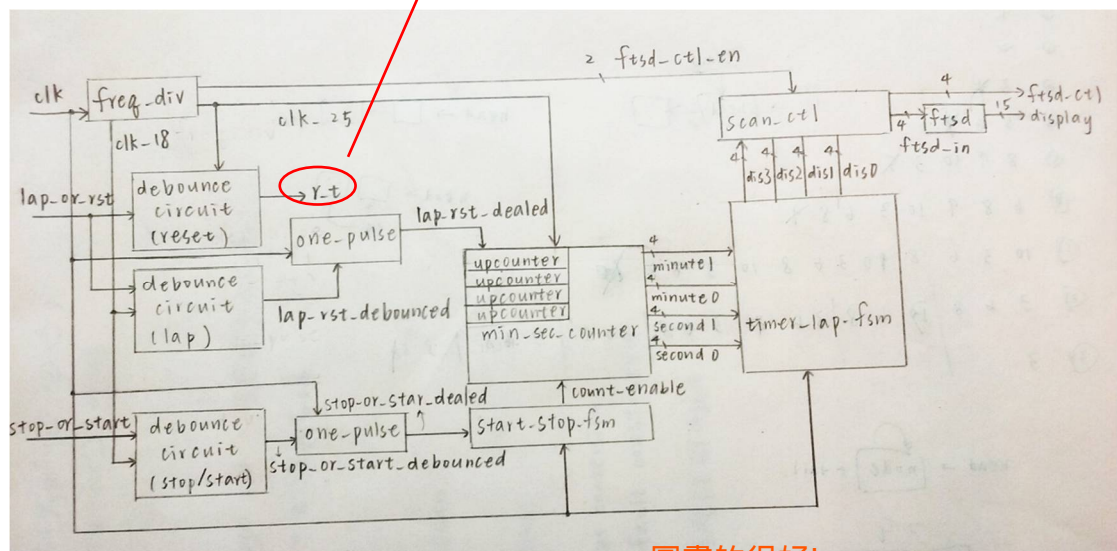 2 ftsd_ctl_en
clk
freq_div
clk_25
clk_18
scan_ctl
4
ftsd_ctl
4
ftsd
15
display
ftsd_in
4 dis3
4 dis2
4 dis1
4 dis0
lap_or_rst
debounce
circuit
(reset)
r_t
one_pulse
lap_rst_dealed
debounce
circuit
(lap)
lap_rst_debounced
upcounter
upcounter
upcounter
upcounter
min_sec_counter
4
minute1
4
minute0
4
second1
4
second0
timer_lap_fsm
count_enable
stop_or_start
debounce
circuit
(stop/start)
stop_or_star_dealed
one_pulse
stop_or_start_debounced
start_stop_fsm
圖畫的很好!